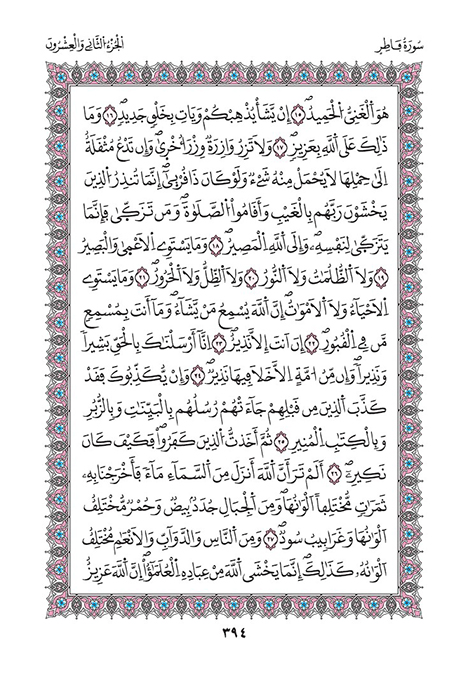 سُورَةُ فَاطِرٍ
الجُزْءُ الثَّانِي وَالعِشْرُونَ
هُوَ اَلْغَنِيُّ اُلْحَمِيدُۖ ١٥ إِنْ يَّشَأْ يُذْهِبْكُمْ وَيَاتِ بِخَلْقٍ جَدِيدٍۖ ١٦ وَمَا
ذَٰلِكَ عَلَى اَللَّهِ بِعَزِيزٍۖ ١٧ وَلَا تَزِرُ وَازِرَةٌ وِزْرَ أُخْرَىٰۖ وَإِن تَدْعُ مُثْقَلَةٌ
اِلَىٰ حِمْلِهَا لَا يُحْمَلْ مِنْهُ شَےْءٌ وَلَوْ كَانَ ذَا قُرْبَىٰٓۖ إِنَّمَا تُنذِرُ اُلذِينَ
يَخْشَوْنَ رَبَّهُم بِالْغَيْبِ وَأَقَامُواْ اُلصَّلَوٰةَۖ وَمَن تَزَكَّىٰ فَإِنَّمَا
يَتَزَكَّىٰ لِنَفْسِهِۦۖ وَإِلَى اَللَّهِ اِلْمَصِيرُۖ ١٨ وَمَا يَسْتَوِے اِلَاعْمَىٰ وَالْبَصِيرُ
١٩ وَلَا اَلظُّلُمَٰتُ وَلَا اَلنُّورُ ٢٠ وَلَا اَلظِّلُّ وَلَا اَلْحَرُورُۖ ٢١ وَمَا يَسْتَوِے
اِلَاحْيَآءُ وَلَا اَلَامْوَٰتُۖ إِنَّ اَللَّهَ يُسْمِعُ مَنْ يَّشَآءُۖ وَمَآ أَنتَ بِمُسْمِعٍ
مَّن فِے اِلْقُبُورِۖ ٢٢ إِنَ اَنتَ إِلَّا نَذِيرٌۖ ٢٣ اِنَّآ أَرْسَلْنَٰكَ بِالْحَقِّ بَشِيراً
وَنَذِيراًۖ وَإِن مِّنُ اُمَّةٍ اِلَّا خَلَا فِيهَا نَذِيرٌۖ ٢٤ وَإِنْ يُّكَذِّبُوكَ فَقَدْ
كَذَّبَ اَلذِينَ مِن قَبْلِهِمْ جَآءَتْهُمْ رُسُلُهُم بِالْبَيِّنَٰتِ وَبِالزُّبُرِ
وَبِالْكِتَٰبِ اِلْمُنِيرِۖ ٢٥ ثُمَّ أَخَذتُّ اُلذِينَ كَفَرُواْۖ فَكَيْفَ كَانَ
نَكِيرِۦۖ ٢٦ أَلَمْ تَرَ أَنَّ اَللَّهَ أَنزَلَ مِنَ اَلسَّمَآءِ مَآءً فَأَخْرَجْنَا بِهِۦ
ثَمَرَٰتٍ مُّخْتَلِفاً اَلْوَٰنُهَاۖ وَمِنَ اَلْجِبَالِ جُدَدٌۢ بِيضٌ وَحُمْرٌ مُّخْتَلِفٌ
اَلْوَٰنُهَا وَغَرَابِيبُ سُودٌۖ ٢٧ وَمِنَ اَلنَّاسِ وَالدَّوَآبِّ وَالَانْعَٰمِ مُخْتَلِفٌ
اَلْوَٰنُهُۥ كَذَٰلِكَۖ إِنَّمَا يَخْشَى اَللَّهَ مِنْ عِبَادِهِ اِلْعُلَمَٰٓؤُاْۖ إِنَّ اَللَّهَ عَزِيزٌ
٣٩٤